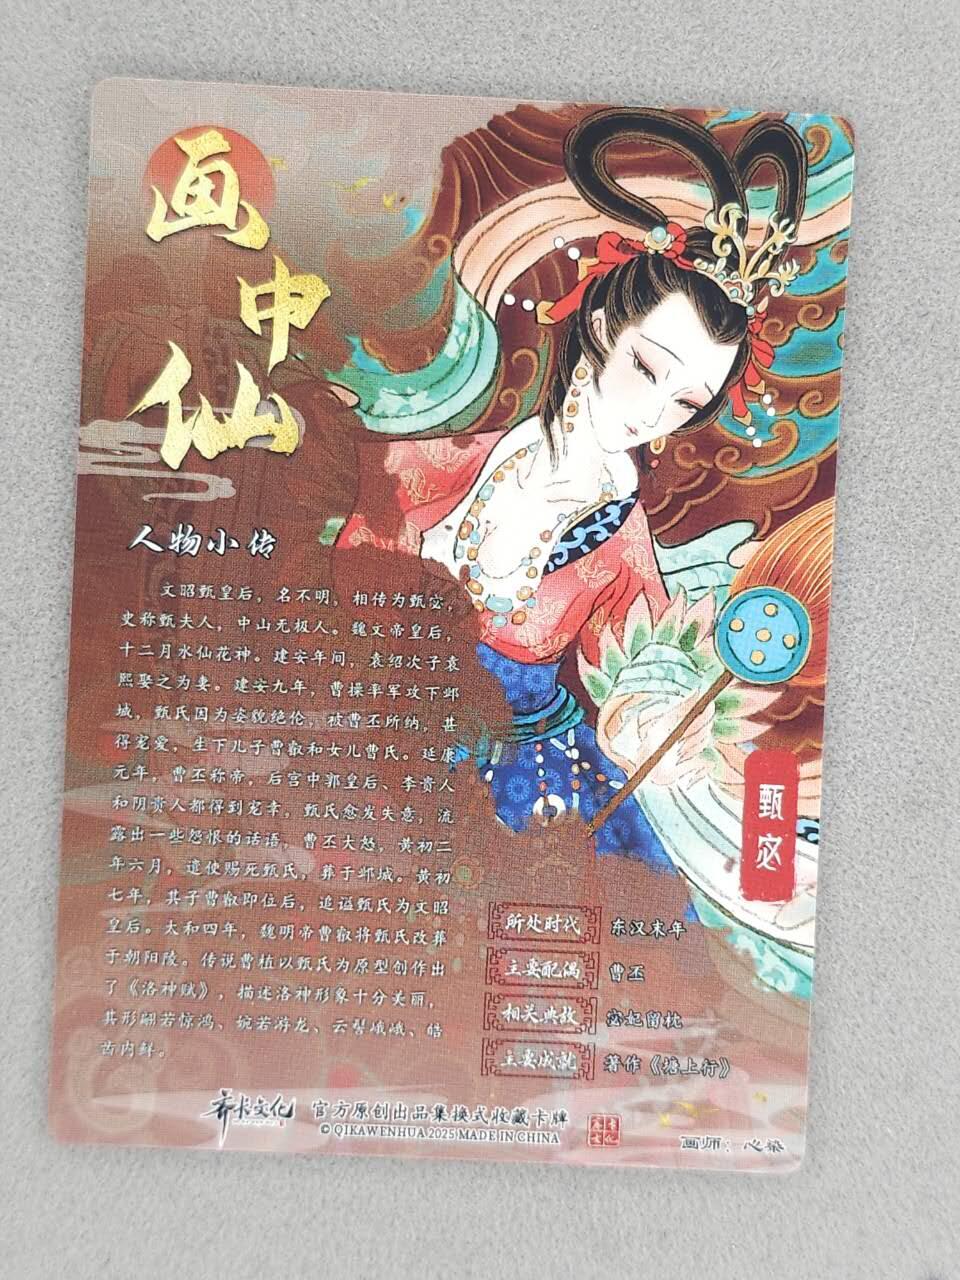 画中仙
人物小传
文昭甄皇后，名不明，相传为甄宓，
史称甄夫人，中山无极人。魏文帝皇后，
十二月水仙花神。建安年间，袁绍次子袁
熙娶之为妻。建安九年，曹操率军攻下邺
城，甄氏因为姿貌绝伦，被曹丕所纳，甚
得宠爱，生下儿子曹叡和女儿曹氏。延康
元年，曹丕称帝，后宫中郭皇后、李贵人
和阴贵人都得到宠幸，甄氏愈发失意，流
露出一些怨恨的话语，曹丕大怒，黄初二
年六月，遣使赐死甄氏，葬于邺城。黄初
七年，其子曹叡即位后，追谥甄氏为文昭
皇后。太和四年，魏明帝曹叡将甄氏改葬
于朝阳陵。传说曹植以甄氏为原型创作出
了《洛神赋》，描述洛神形象十分美丽，
其形翩若惊鸿、婉若游龙、云髻峨峨、皓
齿内鲜。
甄宓
所处时代 东汉末年
主要配偶 曹丕
相关典故 宓妃留枕
主要成就 著作《塘上行》
齐卡文化 官方原创出品集换式收藏卡牌
© QIKAWENHUA 2025 MADE IN CHINA
画师：心染